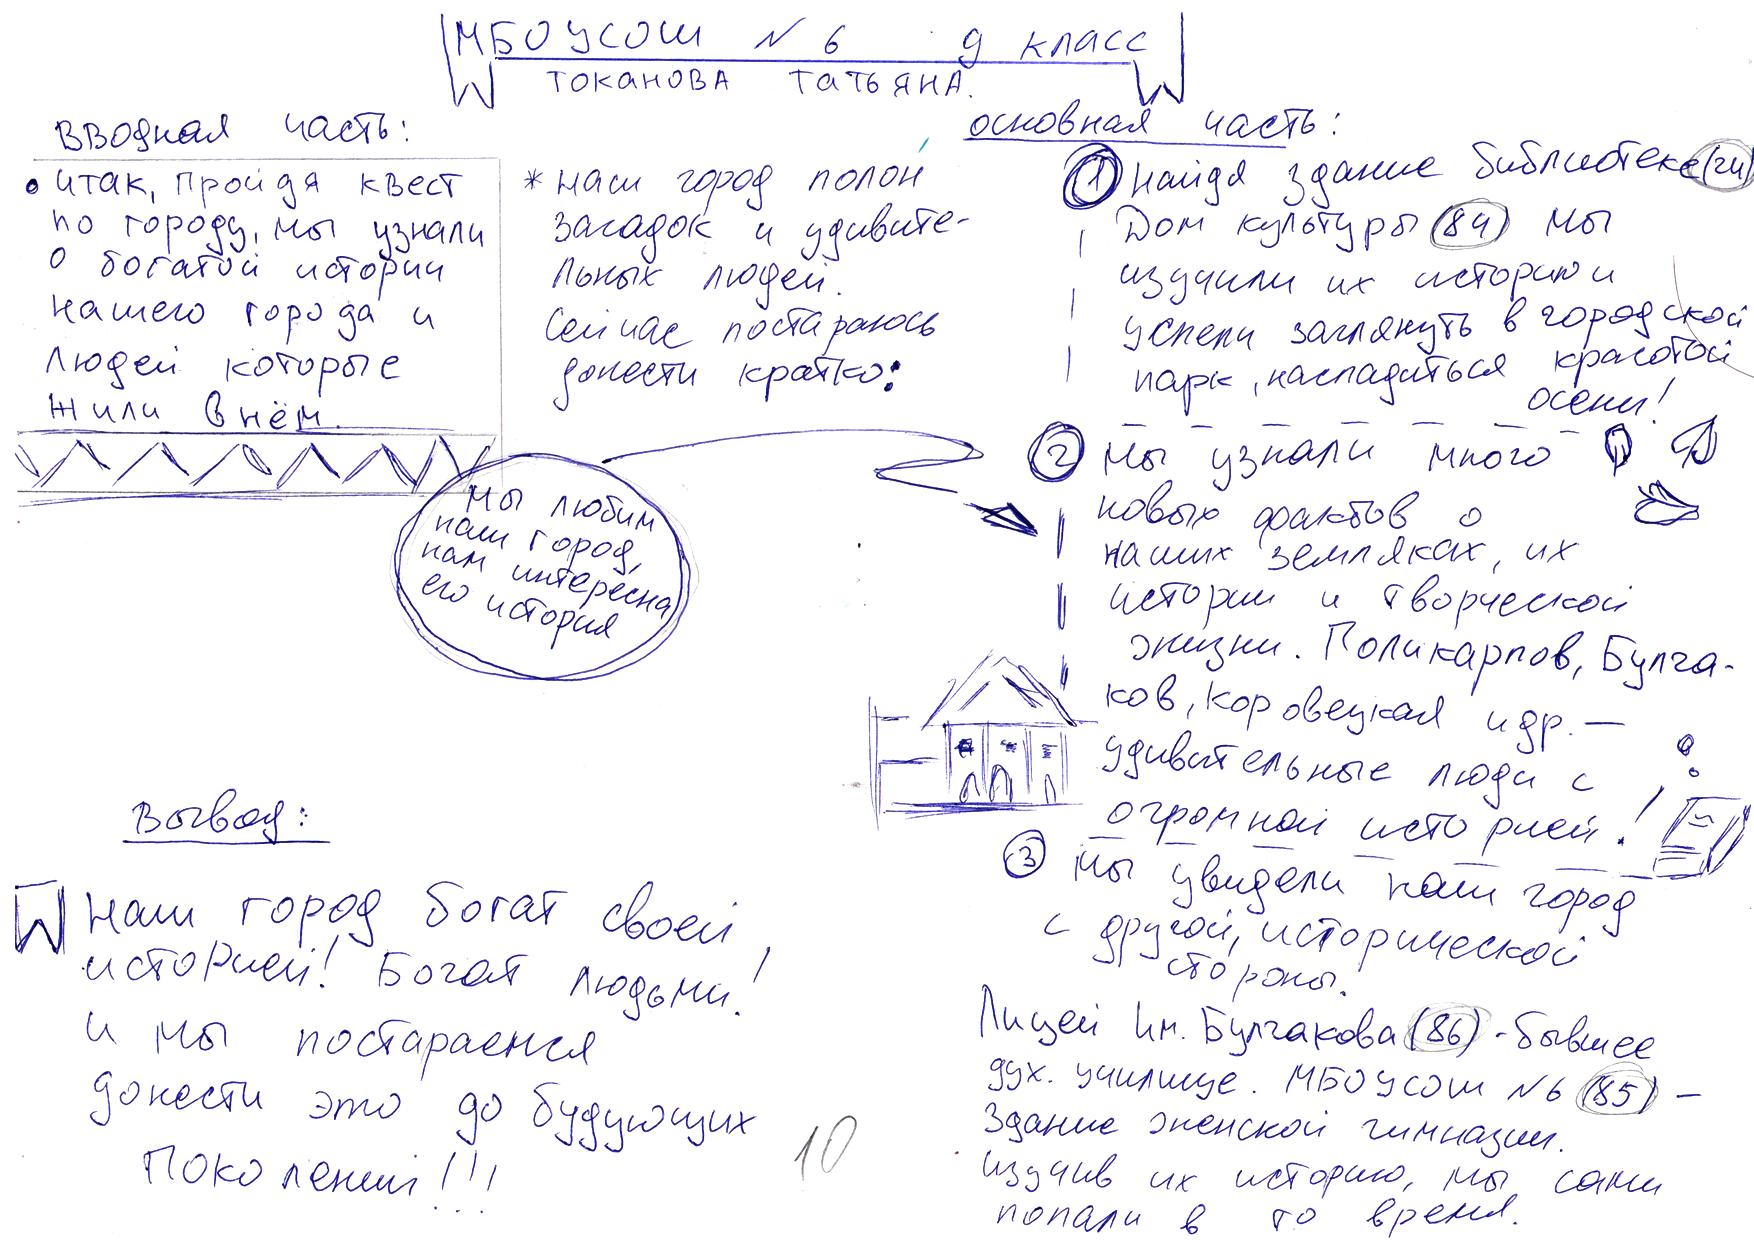 МБОУСОШ №6 9 класс
Токанова Татьяна.
Вводная часть:
• итак, пройдя квест
по городу, мы узнали
о богатой истории
нашего города и
людей которые
жили в нём.
* наш город полон
загадок и удивите-
льных людей.
Сейчас постараюсь
донести кратко:
мы любим
наш город,
нам интересна
его история
основная часть:
1 найдя здание библиотеке (24)
Дом культуры (84) мы
изучили их историю и
успели заглянуть в городской
парк, насладиться красотой
осени!
2 мы узнали много
новых фактов о
наших земляках, их
истории и творческой
жизни. Поликарпов, Булга-
ков, Коровецкая и др. —
удивительные люди с
огромной историей!
3 мы увидели наш город
с другой, исторической
стороны.
Лицей им. Булгакова (86) - бывшее
дух. училище. МБОУСОШ №6 (85) —
Здание женской гимназии.
изучив их историю, мы сами
попали в то время.
Вывод:
Наш город богат своей
историей! Богат людьми!
и мы постараемся
донести это до будующих
Поколений!!!
10